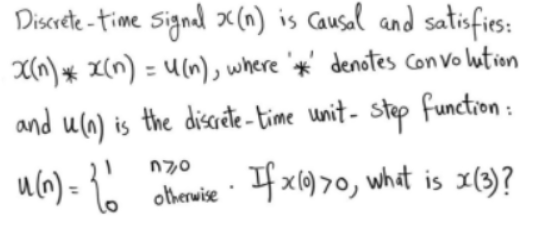 Discrete-time signal x(n) is causal and satisfies:
x(n) * x(n) = u(n), where '*' denotes convolution
and u(n) is the discrete-time unit-step function:
u(n) = { 1 n≥0 0 otherwise . If x(0)>0, what is x(3)?